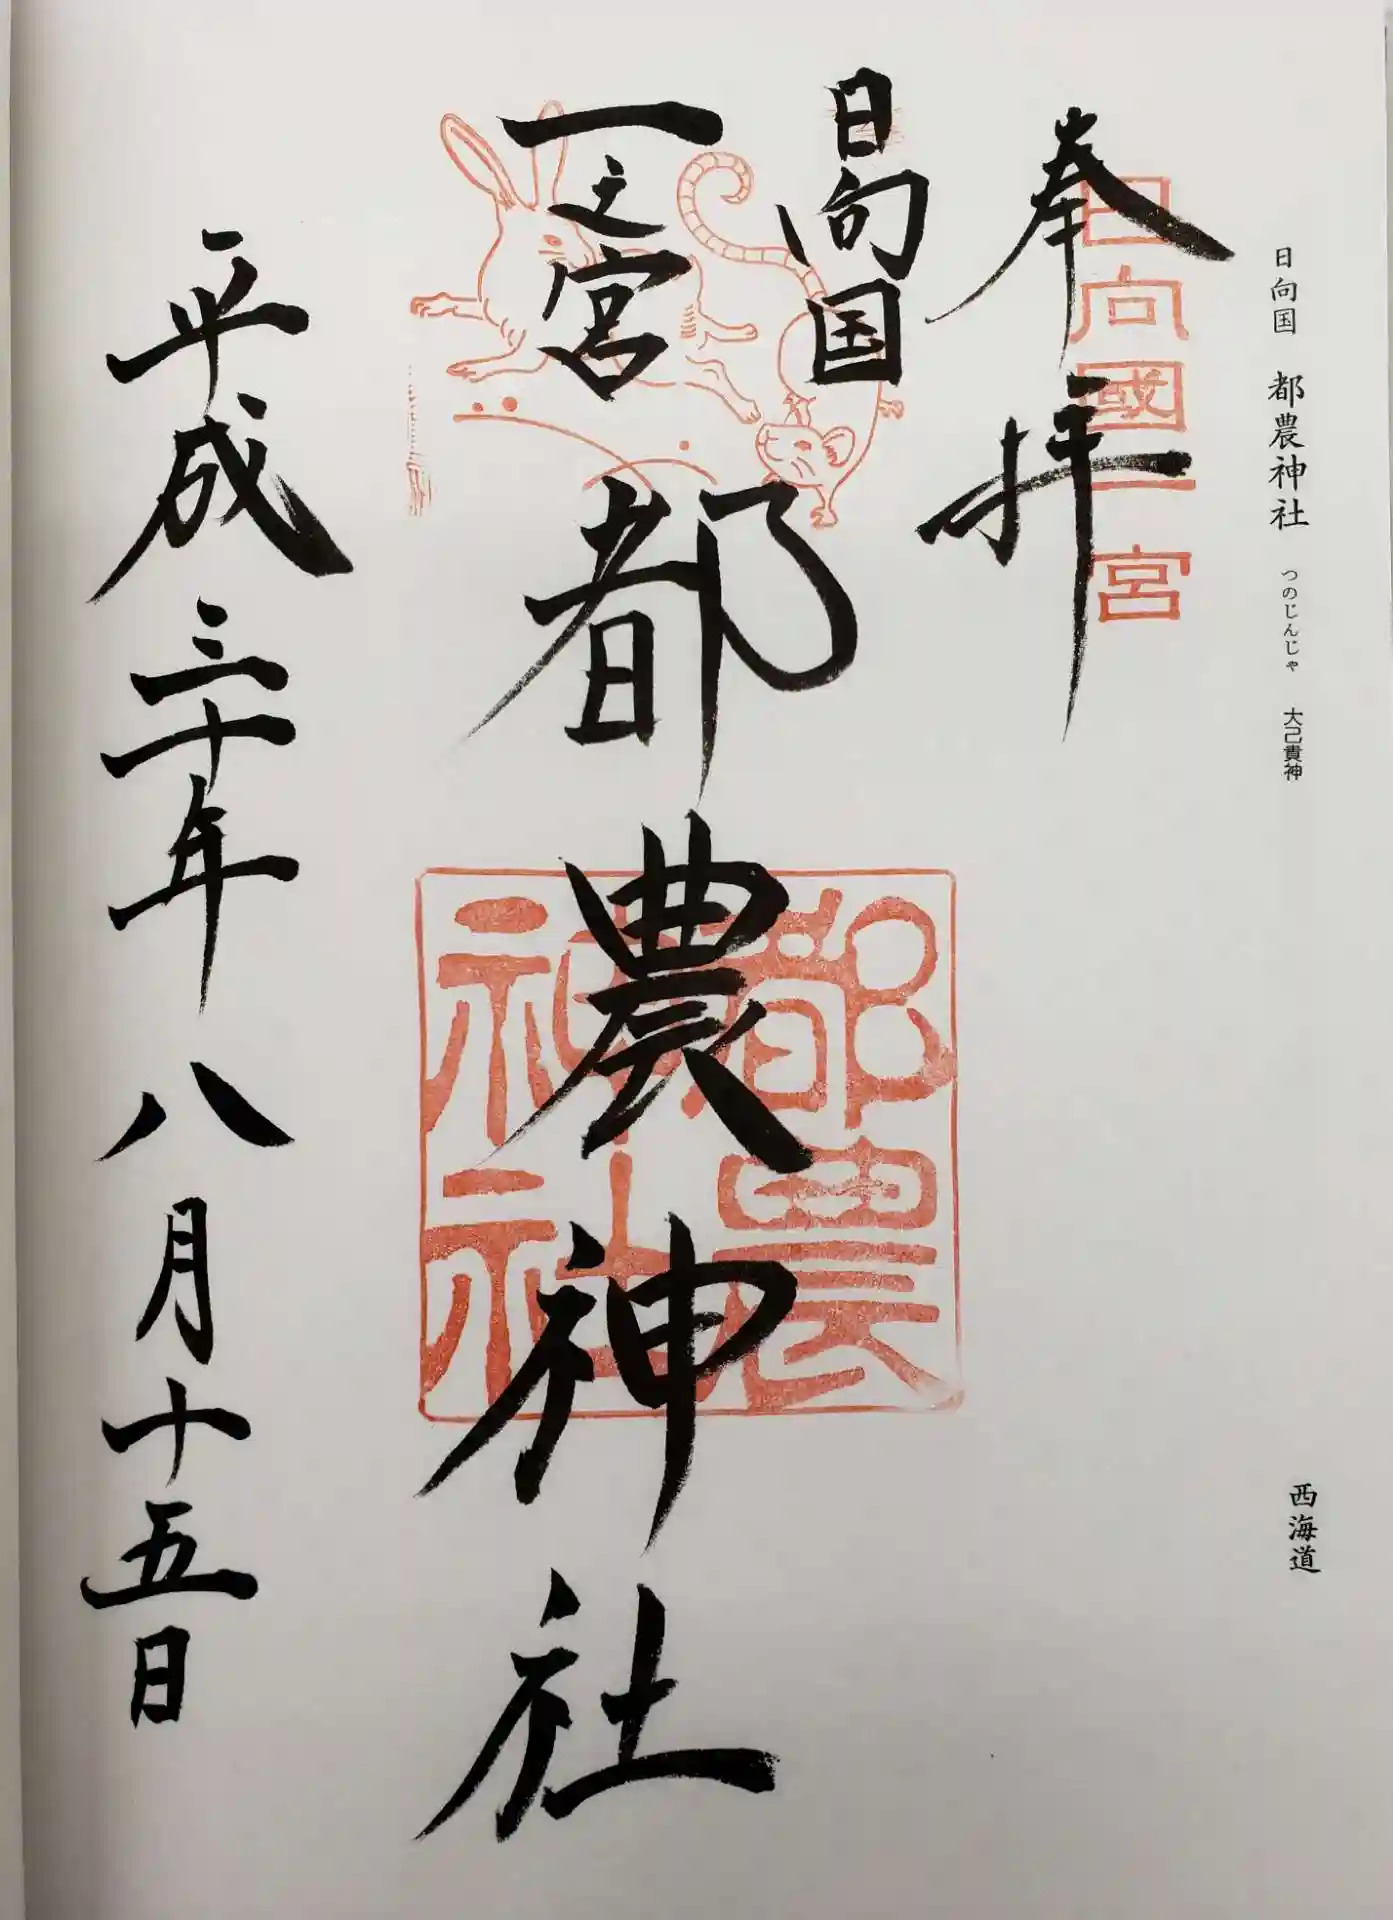 日向国 都農神社 つのじんじゃ 大己貴神
西海道
奉拝
日向國一宮
日向国
一之宮 都農神社
都農神社
平成三十年八月十五日